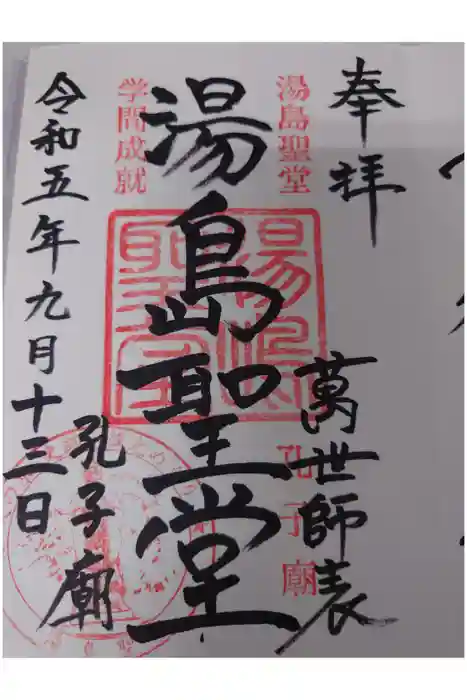 奉拝
湯島聖堂
萬世師表
孔子廟
湯島聖堂
湯島聖堂
学問成就
孔子廟
令和五年九月十三日